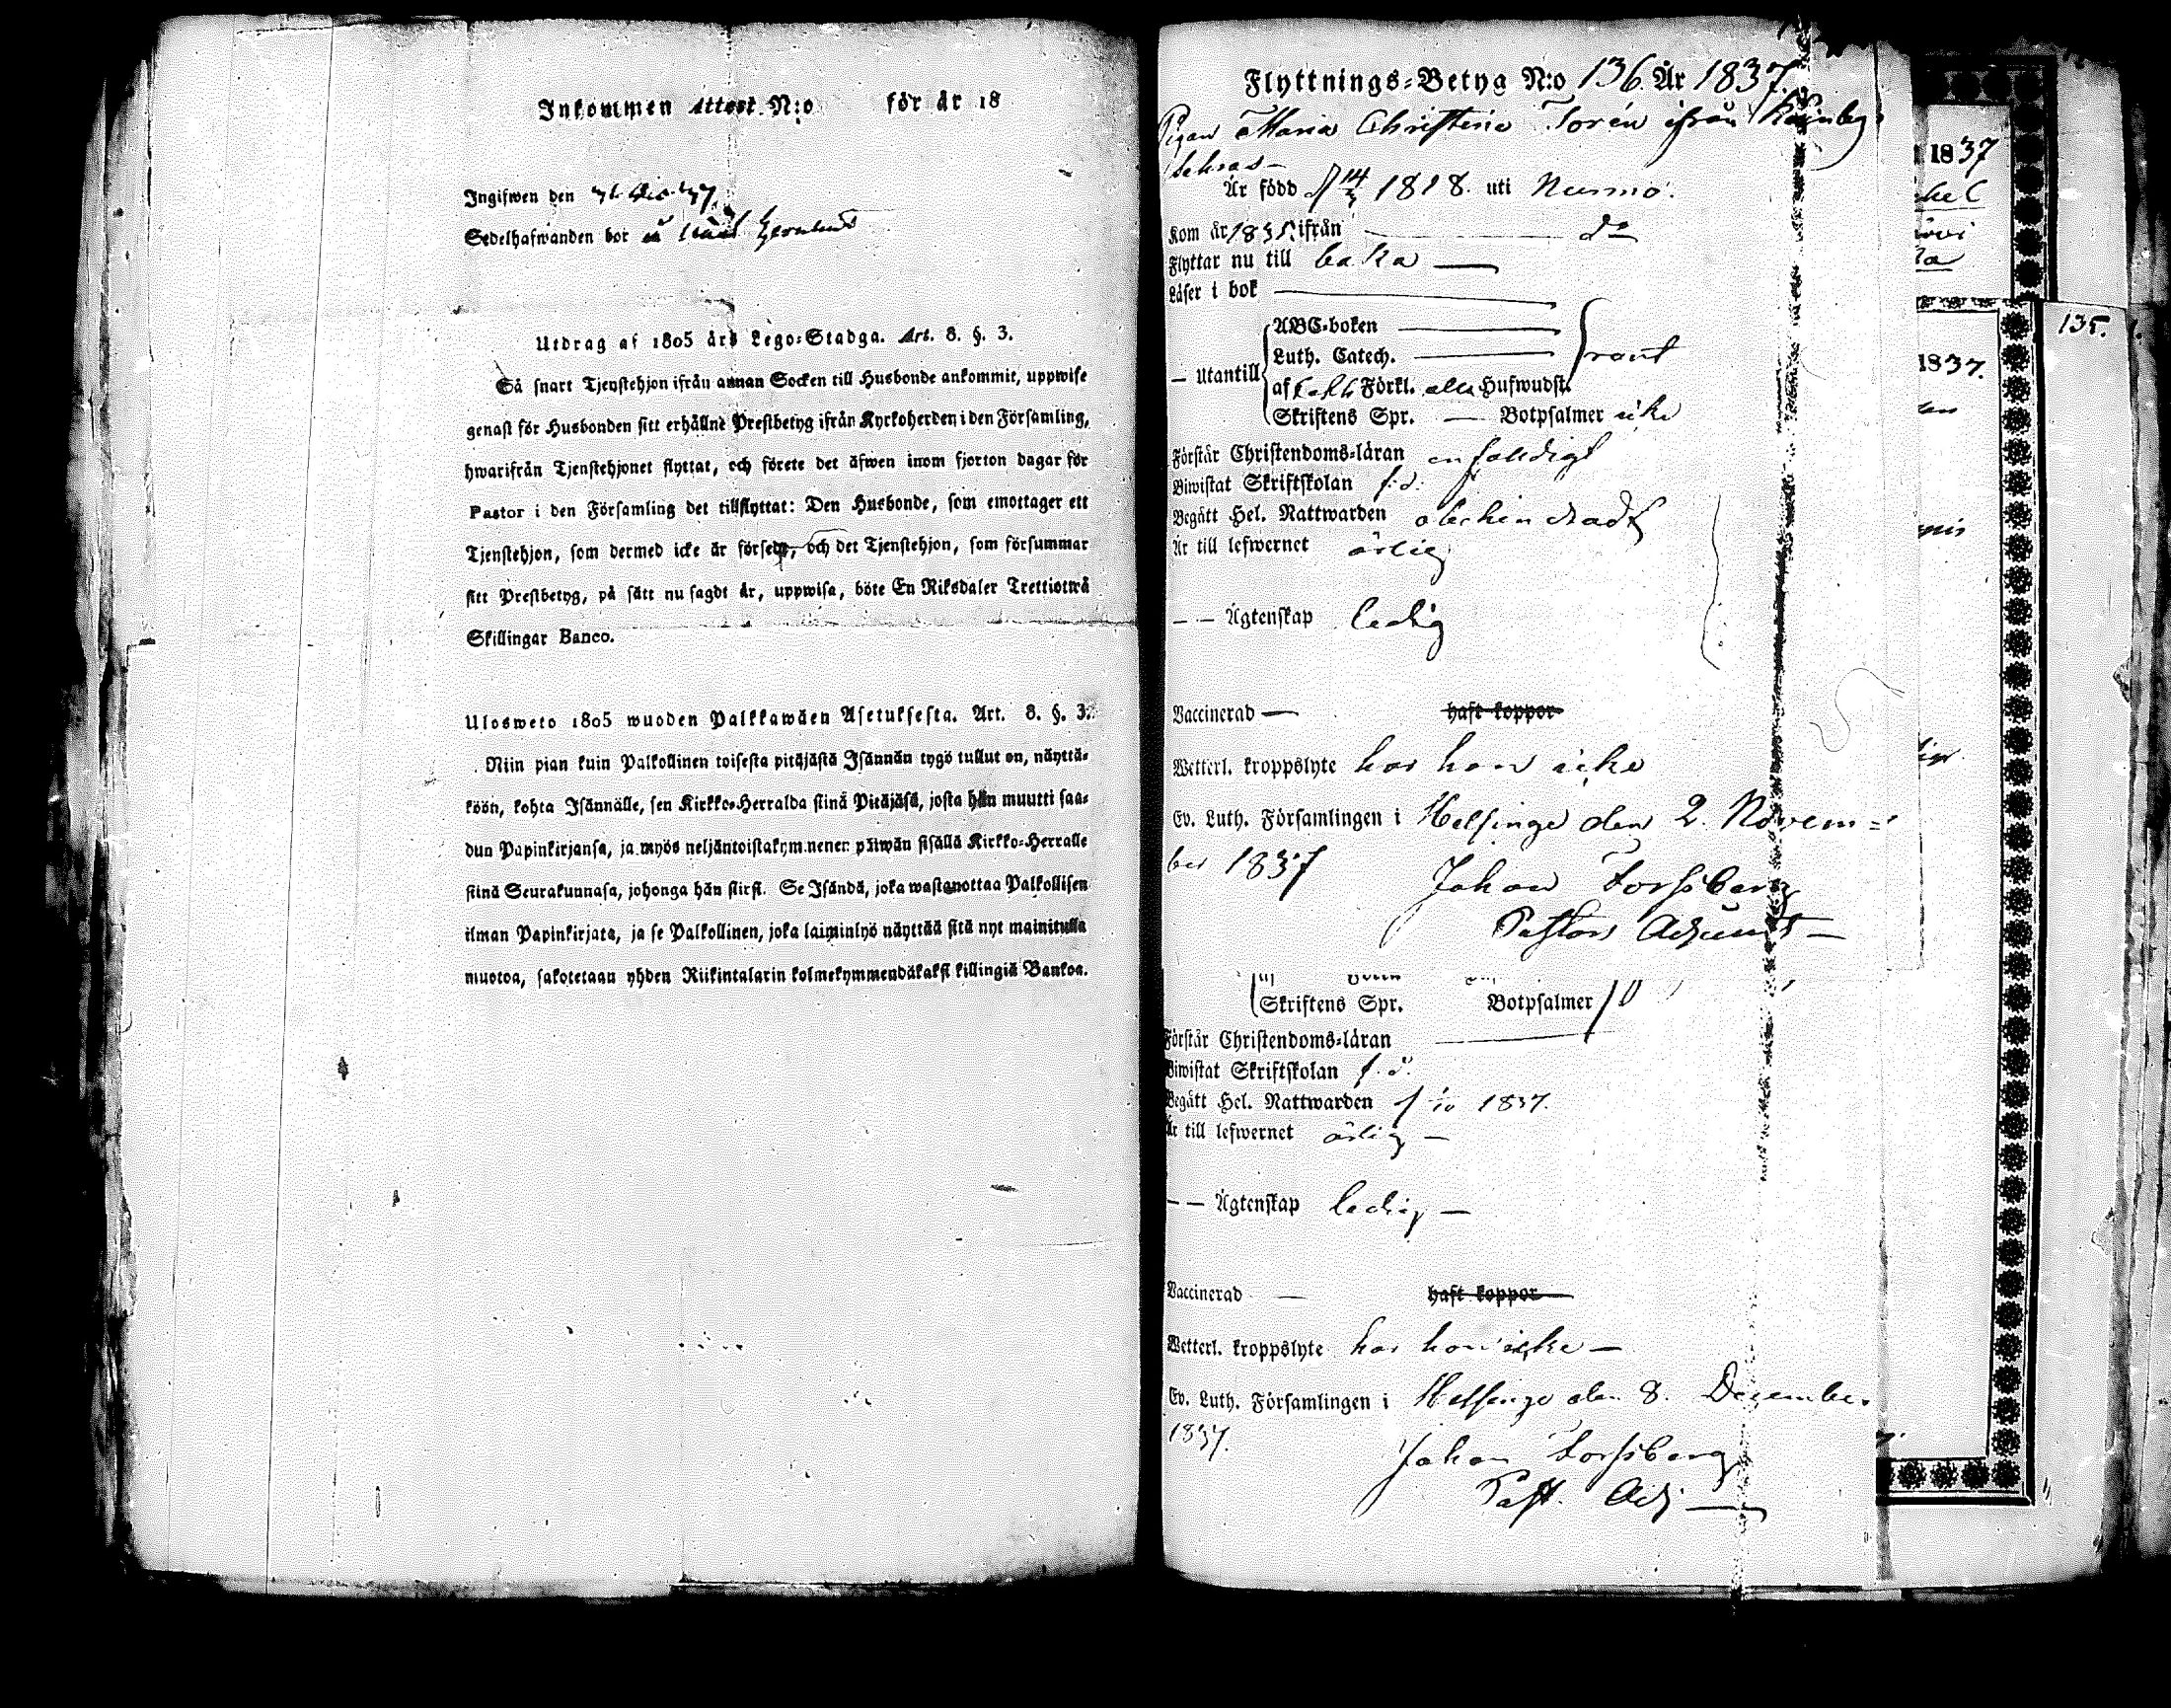 Inkommen Attest N:o för år 18
Ingifwen den
Sedelhafwanden bor
Utdrag af 1805 års Lego-Stadga. Art. 8. §. 3.
Så snart Tjenstehjon ifrån annan Socken till Husbonde ankommit, uppwise
genast för Husbonden sitt erhållne Prestbetyg ifrån Kyrkoherden i den Församling,
hwarifrån Tjenstehjonet flyttat, och förete det äfwen inom fjorton dagar för
Pastor i den Församling det tillflyttat: Den Husbonde, som emottager ett
Tjenstehjon, som dermed icke är försedt, och det Tjenstehjon, som försummar
sitt Prestbetyg, på sätt nu sagdt är, uppwisa, böte En Riksdaler Trettiotwå
Skillingar Banco.
Ulosweto 1805 wuoden Palkkawäen Asetuksesta. Art. 8. §. 3.
Niin pian kuin Palkollinen toisesta pitäjästä Isännän tygö tullut on, näyttä-
köön, kohta Isännälle, sen Kirkko-Herralda siinä Pitäjäsä, josta hän muutti saa-
dun Papinkirjansa, ja myös neljäntoistakymmenen päiwän sisällä Kirkko-Herralle
siinä Seurakunnasa, johonga hän siirsi. Se Isändä, joka wastanottaa Palkollisen
ilman Papinkirjata, ja se Palkollinen, joka laiminlyö näyttää sitä nyt mainitulla
muotoa, sakotetaan yhden Riikintalarin kolmekymmendäkaksi killingiä Bankoa.
Flyttnings-Betyg N:o 136. År 1837.
Pigan Maria Christina Torén ifrån
Är född d 14 1818. uti Nurmo.
Kom år ifrån do
Flyttar nu till baka —
Läser i bok
— Utantill
ABC-boken
Luth. Catech.
af Förkl. alla Hufwudst.
Skriftens Spr. — Botpsalmer icke
Förstår Christendoms-läran enfaldigt
Biwistat Skriftskolan f. d.
Begått Hel. Nattwarden obehindradt
Är till lefwernet ärlig
— — Ägtenskap ledig
Vaccinerad — haft koppor
Wetterl. kroppslyte har hon icke
Ev. Luth. Församlingen i Helsinge den 2. Novem=
ber 1837
Johan Forssberg
Pastors Adjunct —
Skriftens Spr. Botpsalmer
Förstår Christendoms-läran
Biwistat Skriftskolan f. d.
Begått Hel. Nattwarden 1837.
Är till lefwernet ärlig —
— — Ägtenskap ledig —
Vaccinerad — haft koppor
Wetterl. kroppslyte har hon icke —
Ev. Luth. Församlingen i Helsinge den 8. December
1837.
Johan Forssberg
Past. Adj —
1837
1837.
135.